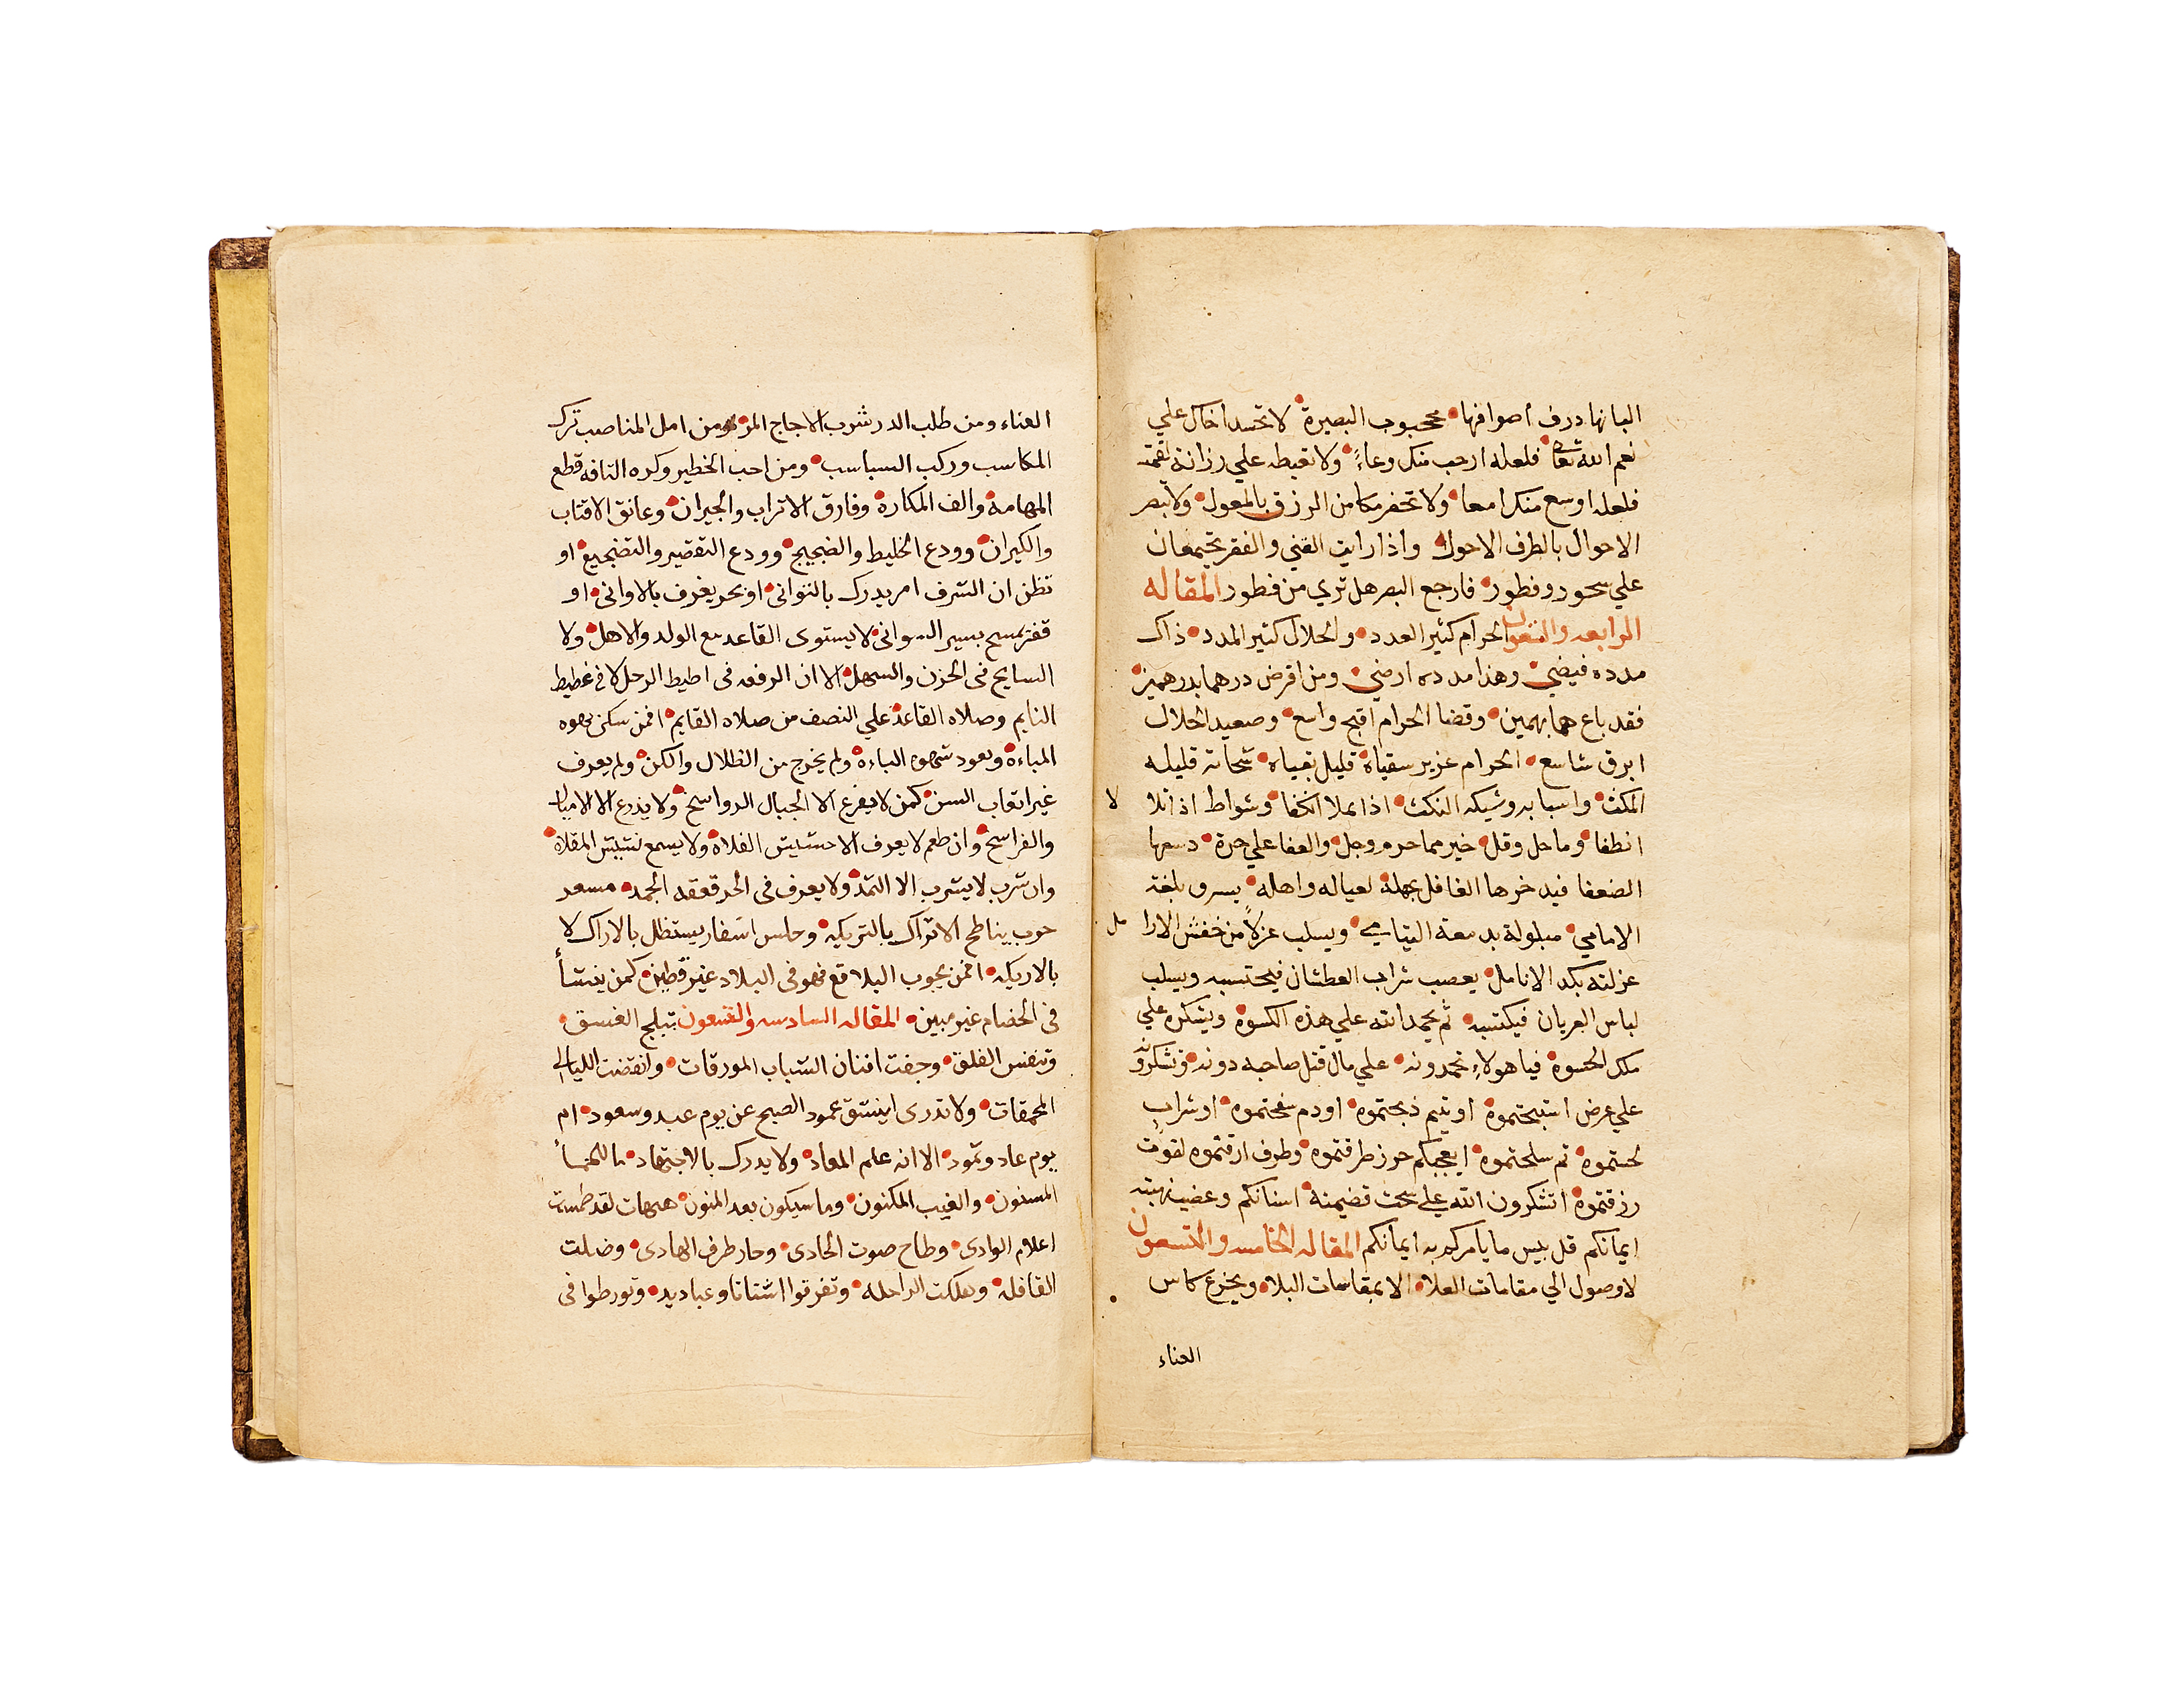 البانها درف اصوافها محجوب البصيرة لا تحسد اخاك علي
نعم الله تعالى فلعله ارحب منك وعاءً ولا تغبطه علي رزانة لقمته
فلعله اوسع منك امعا ولا تحفر مكامن الرزق بالمعول ولا تبصر
الاحوال بالطرف الاحول واذا رايت الغني والفقر يجتمعان
علي سحور وفطور فارجع البصر هل تري من فطور المقاله
الرابعه والتسعون الحرام كثير العدد والحلال كثير المدد ذاك
مدده فيضي وهذا مدده ارضي ومن اقرض درهما بدرهمين
فقد باع هما بهمين وقضا الحرام اقبح واسع وصعيد الحلال
ابرق شاسع الحرام عزير سقياه قليل بقياه شحاته قليله
المكث واسبابه وشيكه النكث اذا علا انخفا وشواظ اذا تلالا
انطفا وما حل وقل خير مما حرم وجل والعفا علي حرة دسعها
الضعفا فيدخرها الغافل بجهله لعياله واهله يسرق بلغة
الايامي مبلولة بدمعة اليتامي ويسلب عزلاً من خفش الارامل
عزلته بكد الانامل يعصب شراب العطشان فيحتسبه ويسلب
لباس العريان فيكتسبه ثم يحمد الله علي هذه الكسوة ويشكره علي
ملك الحسوة فيا هولاء تحمدونه علي مال قتل صاحبه دونه وتشكرونه
علي عرض استبحتموه او يتيم ذبحتموه او دم سفحتموه او شراب
لحستموه ثم سلحتموه ايعجبكم حرز طرقتموه وطرف ارقتموه لقوت
رزقتموه اتشكرون الله علي سحت قضيمته اسنانكم وعضب نهبته
ايمانكم قل بيس ما يامركم به ايمانكم المقاله الخامسه والتسعون
لا وصول الي مقامات العلا الا بمقاسات البلا وبجرع كاس
العناء
العناء ومن طلب الدر شرب الاجاج المر ومن امل المناصب ترك
المكاسب وركب السباسب ومن احب الخطير وكره التافه قطع
المهامه والف المكاره وفارق الاتراب والجيران وعانق الاقتاب
والكيران وودع الخليط والضجيج وودع التقصير والتضجيع او
تظن ان الشرف امر يدرك بالتواني او بحر يغرف بالاواني او
قفز يمسح بسير السواني لا يستوى القاعد مع الولد والاهل ولا
السايح فى الحزن والسهل الا ان الرفعه فى اطيط الرحل لا فى غطيط
النايم وصلاه القاعد علي النصف من صلاه القايم افمن سكن بهوه
المباءه وتعود شهوه الباءه ولم يخرج من الظلال والكن ولم يعرف
غير اتعاب السن كمن لا يفرع الا الجبال الرواسخ ولا يذرع الا الاميال
والفراسخ وان طعم لا يعرف الا حشيش الفلاه ولا يسمع نشيش المقلاه
وان شرب لا يشرب الا الثمد ولا يعرف فى الحر قعقعه الجمد مسعر
حرب يناطح الاتراك بالتريكه وحلس اسفار يستظل بالاراك لا
بالاريكه افمن يجوب البلاقع فهو فى البلاد غير قطين كمن ينشأ
فى الخصام غير مبين المقاله السادسه والتسعون تبلج الغسق
وتنفس الفلق وجفت افنان الشباب المورقات وانقضت الليالي
المحمقات ولا تدرى اينشق عمود الصبح عن يوم عيد وسعود ام
يوم عاد وثمود الا انه علم المعاد ولا يدرك بالاجتهاد ما للحمأ
المسنون والغيب المكنون وما سيكون بعد المنون هيهات لقد طمست
اعلام الوادى وطاح صوت الحادى وحار طرف الهادى وضلت
القافله وهلكت الراحله وتفرقوا اشتاتا وعباديد وتورطوا فى